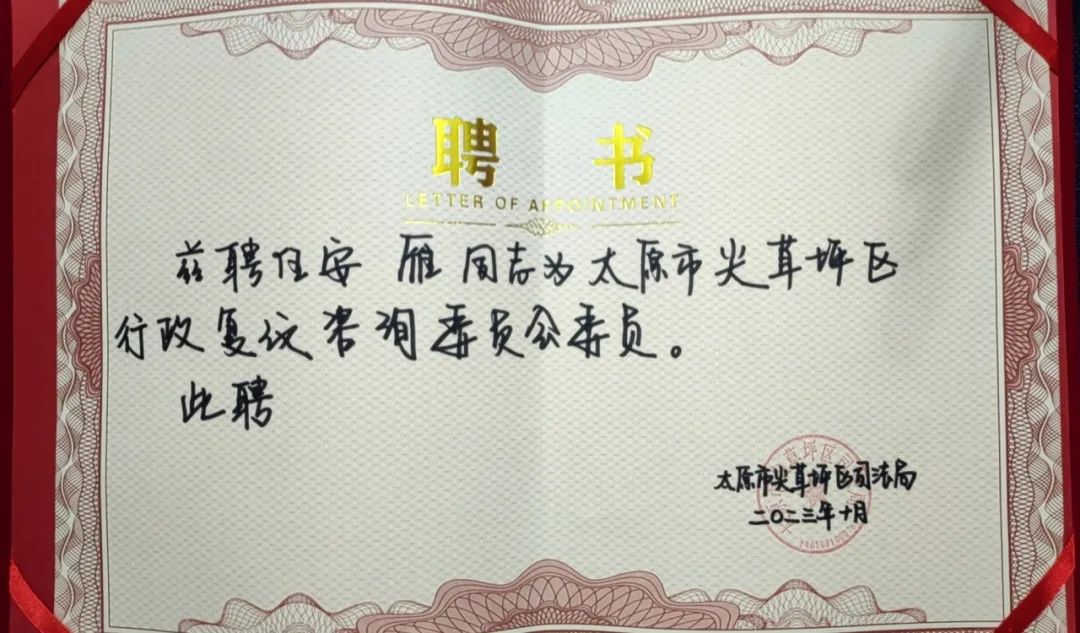 聘 书
LETTER OF APPOINTMENT
兹聘任安 雁 同志为太原市尖草坪区
行政复议咨询委员会委员。
此聘
太原市尖草坪区司法局
二〇二三年十月